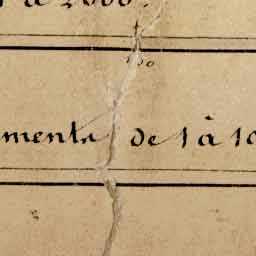 à 2000.
ments de 1 à 10